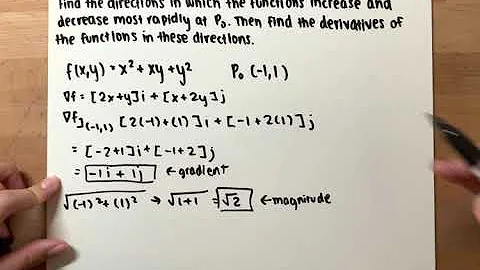 Find the directions in which the functions increase and
decrease most rapidly at P₀. Then find the derivatives of
the functions in these directions.
f(x,y) = x² + xy + y²   P₀ (-1,1)
∇f = [2x+y]i + [x+2y]j
∇f](-1,1) [2(-1)+(1)]i + [-1+2(1)]j
= [-2+1]i + [-1+2]j
= -1i + 1j ← gradient
√(-1)²+(1)² → √1+1 = √2 ← magnitude